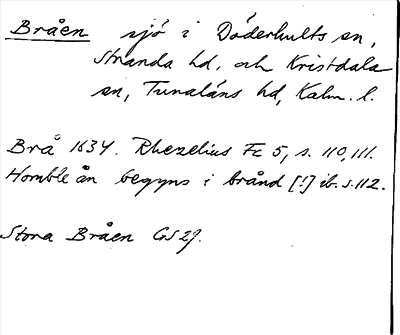 Bråen sjö i Döderhults sn,
Stranda hd, och Kristdala
sn, Tunaläns hd, Kalm. l.
Brå 1634. Rhezelius Fc 5, s. 110, 111.
Homble ån begyns i brånd [!] ib. s. 112.
Stora Bråen GS 29.